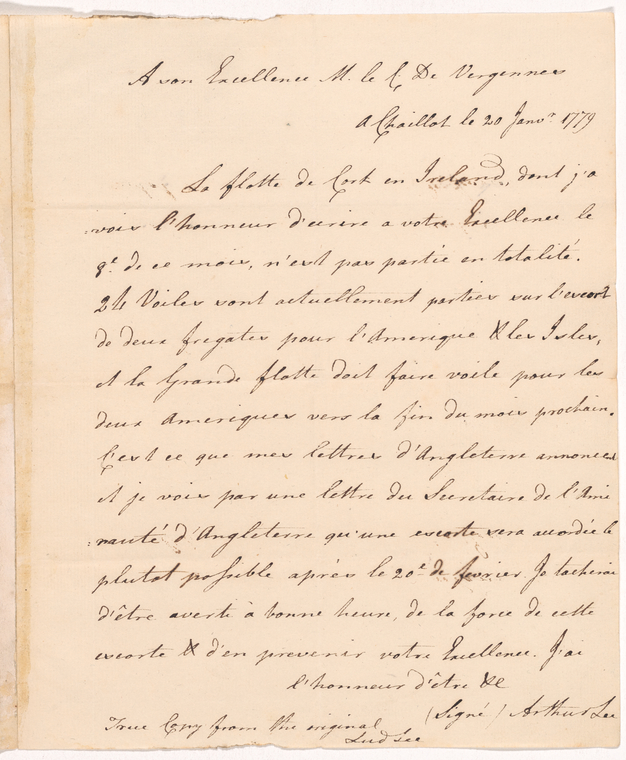 A son Excellence M. le C. De Vergennes
A Chaillot le 20 Janvr. 1779
La flotte de Cork en Ireland, dont j'a
=vois l'honneur d'ecrire a votre Excellence le
3e. de ce mois, n'est pas partie en totalité.
24 Voiles sont actuellement parties sur l'escort
de deux fregates pour l'Amerique & les Isles,
et la Grande flotte doit faire voile pour les
deux Ameriques vers la fin du mois prochain.
C'est ce que mes lettres d'Angleterre annoncent
et je vois par une lettre du Secretaire de l'Ami
=rauté d'Angleterre qu'une escorte sera accordée le
plutot possible aprés le 20e. de fevrier Je tacherai
d'être averti à bonne heure, de la force de cette
escorte & d'en prevenir votre Excellence. J'ai
l'honneur d'être &c
(Signé) Arthur Lee
True Copy from the original
Lud Lee